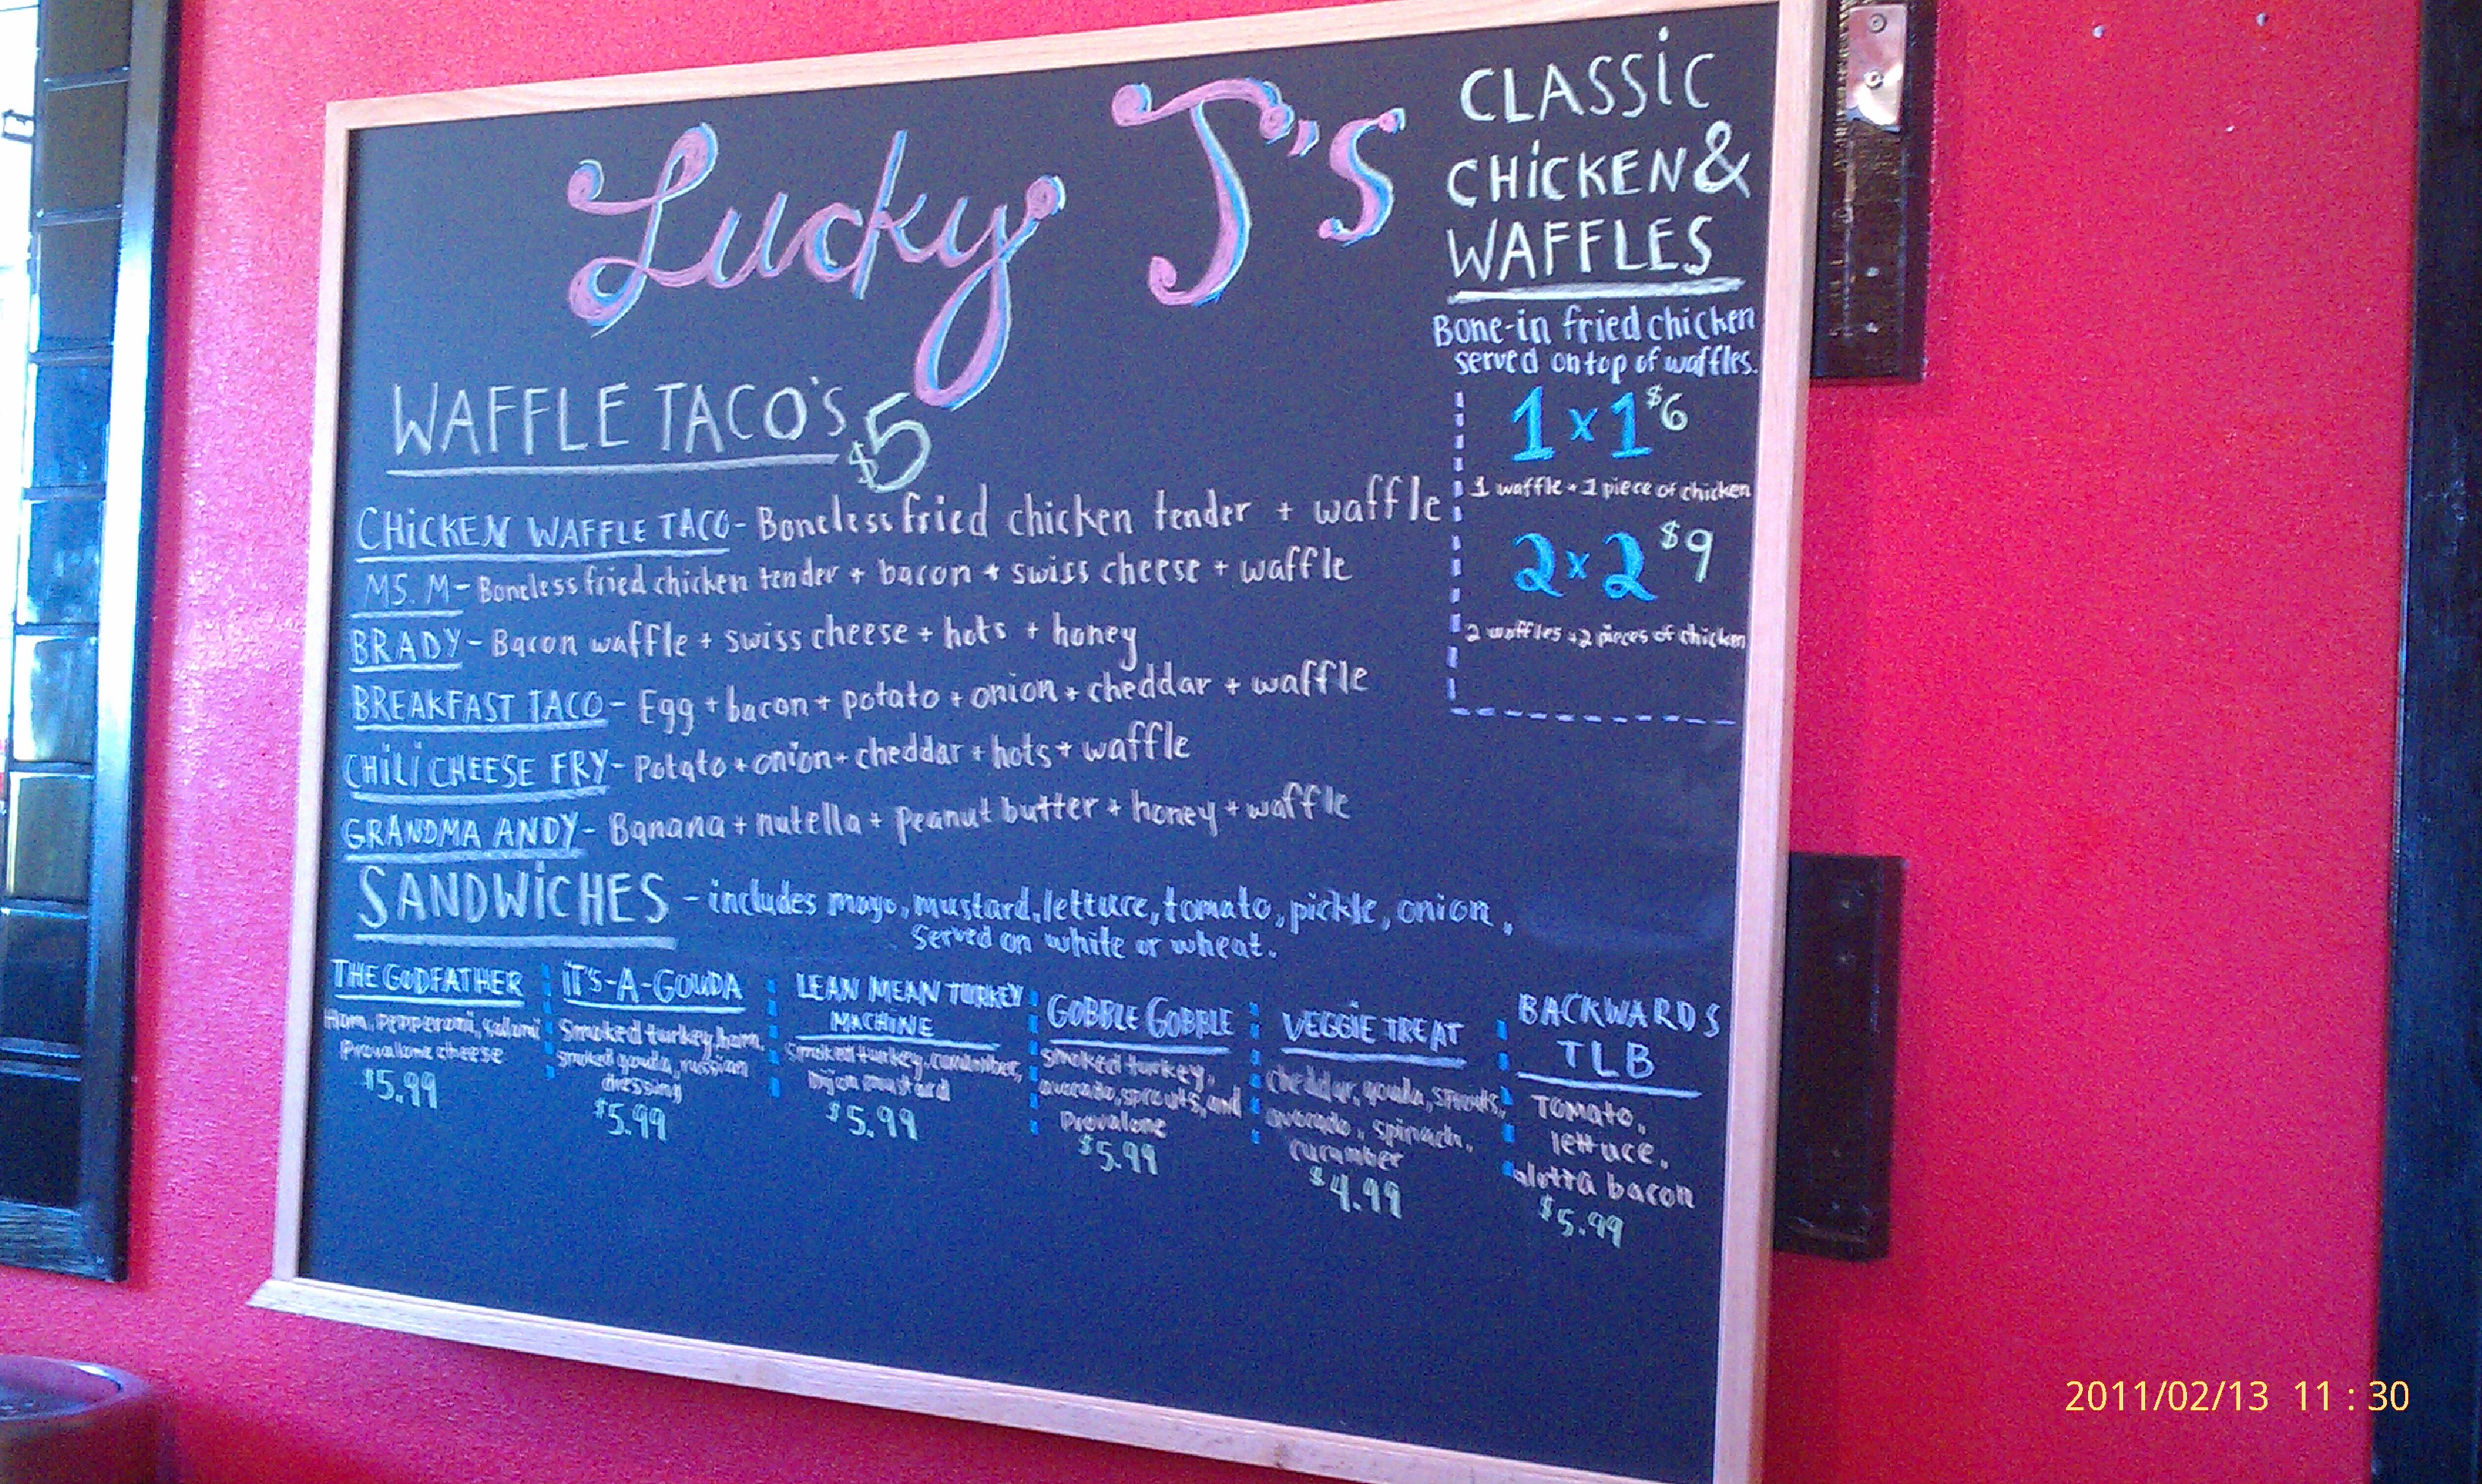 Lucky J's
WAFFLE TACO'S $5
CHiCKEN WAFFLE TACO - Boneless fried chicken tender + waffle
MS. M - Boneless fried chicken tender + bacon + swiss cheese + waffle
BRADY - Bacon waffle + swiss cheese + hots + honey
BREAKFAST TACO - Egg + bacon + potato + onion + cheddar + waffle
CHiLi CHEESE FRY - Potato + onion + cheddar + hots + waffle
GRANDMA ANDY - Banana + nutella + peanut butter + honey + waffle
CLASSiC
CHiCKEN &
WAFFLES
Bone-in fried chicken
served on top of waffles.
1 x 1 $6
1 waffle + 1 piece of chicken
2 x 2 $9
2 waffles + 2 pieces of chicken
SANDWiCHES - includes mayo, mustard, lettuce, tomato, pickle, onion,
Served on white or wheat.
THE GODFATHER
Ham, pepperoni, salami
Provalone cheese
$5.99
iT'S-A-GOUDA
Smoked turkey, ham,
smoked gouda, russian
dressing
$5.99
LEAN MEAN TURKEY
MACHINE
Smoked turkey, cucumber,
Dijon mustard
$5.99
GOBBLE GOBBLE
Smoked turkey,
avocado, sprouts, and
Provalone
$5.99
VEGGiE TREAT
cheddar, gouda, sprouts,
avocado, spinach,
cucumber
$4.99
BACKWARDS
TLB
Tomato,
lettuce,
alotta bacon
$5.99
2011/02/13 11 : 30